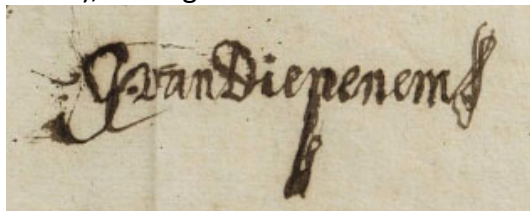 G. van Diepenem